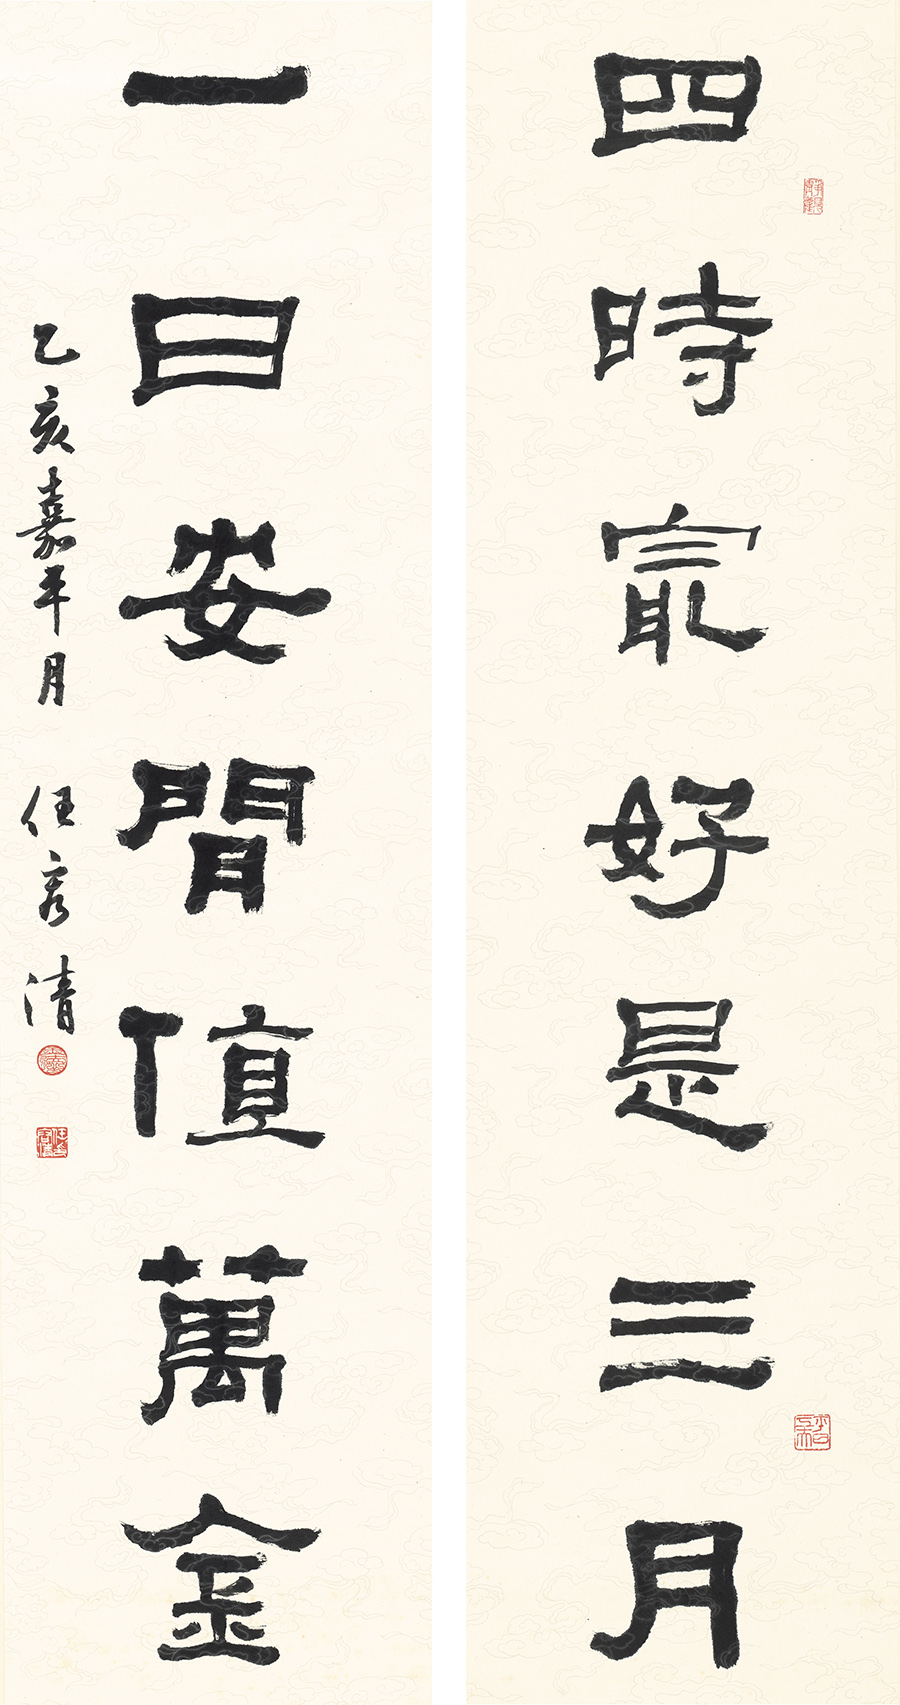 四時冣好是三月
一日安閒值萬金
乙亥嘉平月 任容清